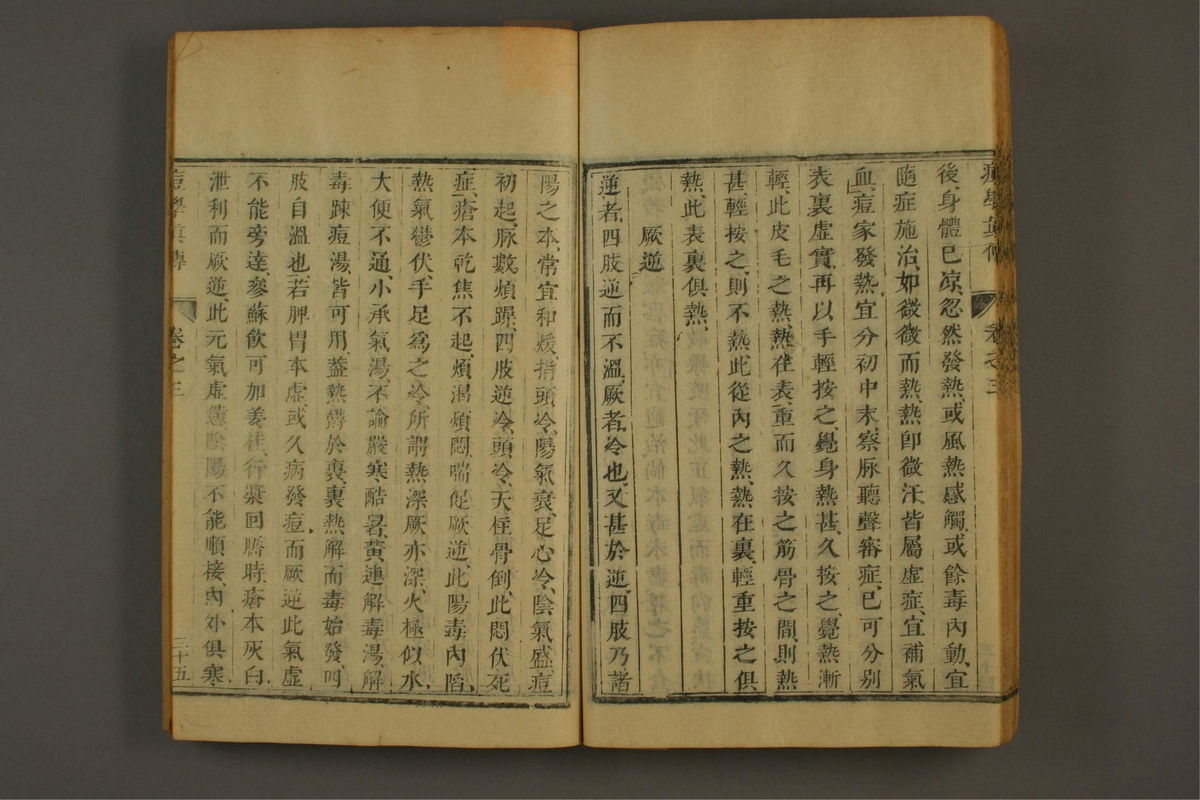 痘學眞傳 卷之三
後、身體已凉、忽然發熱、或風熱感觸、或餘毒內動、宜
隨症施治、如微微而熱、熱卽微汗、皆屬虛症、宜補氣
血、痘家發熱、宜分初中末、察脉聽聲審症、已可分别
表裏虛實、再以手輕按之、覺身熱甚、久按之、覺熱漸
輕、此皮毛之熱、熱在表、重而久按之筋骨之間、則熱
甚、輕按之、則不熱、此從內之熱、熱在裏、輕重按之俱
熱、此表裏俱熱、
厥逆
逆者、四肢逆而不溫、厥者、冷也、又甚於逆、四肢乃諸
陽之本、常宜和煖、指頭冷、陽氣衰、足心冷、陰氣盛、痘
初起、脉數煩躁、四肢逆冷、頭冷、天柱骨倒、此悶伏死
症、瘡本乾焦不起、煩渴煩悶、喘促厥逆、此陽毒內陷、
熱氣鬱伏、手足爲之冷、所謂熱深厥亦深、火極似水、
大便不通、小承氣湯、不論嚴寒酷暑、黃連解毒湯、解
毒踈痘湯、皆可用、蓋熱鬱於裏、裏熱解而毒始發、四
肢自溫也、若脾胃本虛、或久病發痘而厥逆、此氣虛
不能旁達、參蘇飮可加姜桂、行漿回膿時、瘡本灰白、
泄利而厥逆、此元氣虛憊、陰陽不能順接、內外俱寒、
痘學眞傳 卷之三 三十五